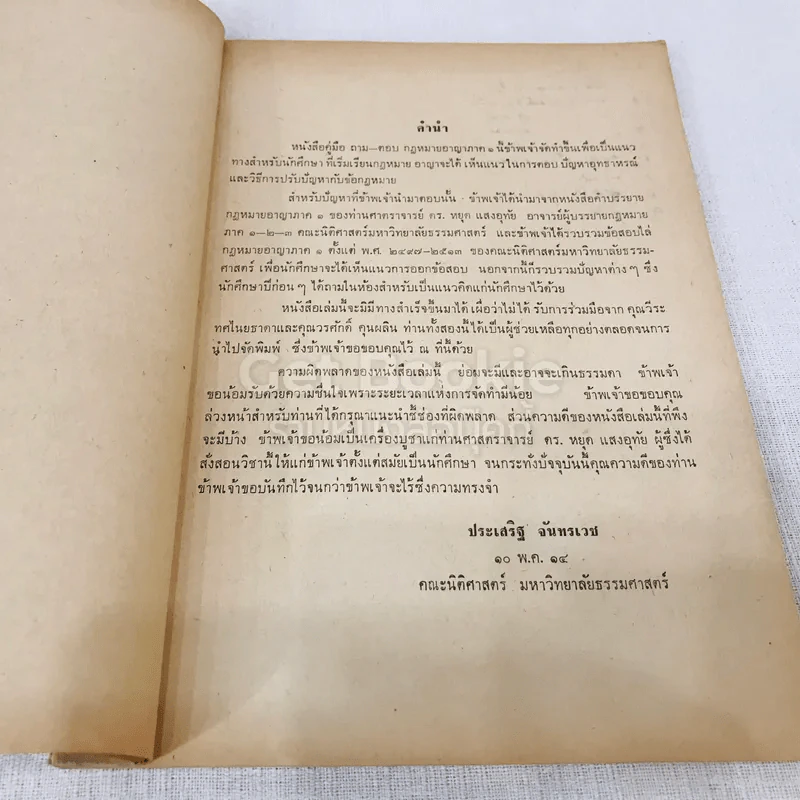 คำนำ
หนังสือคู่มือ ถาม—ตอบ กฎหมายอาญาภาค ๑ นี้ข้าพเจ้าจัดทำขึ้นเพื่อเป็นแนว
ทางสำหรับนักศึกษา ที่เริ่มเรียนกฎหมาย อาญาจะได้ เห็นแนวในการตอบ ปัญหาอุทธาหรณ์
และวิธีการปรับปัญหากับข้อกฎหมาย
สำหรับปัญหาที่ข้าพเจ้านำมาตอบนั้น ข้าพเจ้าได้นำมาจากหนังสือคำบรรยาย
กฎหมายอาญาภาค ๑ ของท่านศาตราจารย์ ดร. หยุด แสงอุทัย อาจารย์ผู้บรรยายกฎหมาย
ภาค ๑—๒—๓ คณะนิติศาสตร์มหาวิทยาลัยธรรมศาสตร์ และข้าพเจ้าได้รวบรวมข้อสอบไล่
กฎหมายอาญาภาค ๑ ตั้งแต่ พ.ศ. ๒๔๙๗—๒๕๑๓ ของคณะนิติศาสตร์มหาวิทยาลัยธรรม-
ศาสตร์ เพื่อนักศึกษาจะได้เห็นแนวการออกข้อสอบ นอกจากนี้ก็รวบรวมปัญหาต่าง ๆ ซึ่ง
นักศึกษาปีก่อน ๆ ได้ถามในห้องสำหรับเป็นแนวคิดแก่นักศึกษาไว้ด้วย
หนังสือเล่มนี้จะมีมีทางสำเร็จขึ้นมาได้ เผื่อว่าไม่ได้ รับการร่วมมือจาก คุณวีระ
ทศไนยธาดาและคุณวรศักดิ์ คุนผลิน ท่านทั้งสองนี้ได้เป็นผู้ช่วยเหลือทุกอย่างตลอดจนการ
นำไปจัดพิมพ์ ซึ่งข้าพเจ้าขอขอบคุณไว้ ณ ที่นี้ด้วย
ความผิดพลาดของหนังสือเล่มนี้ ย่อมจะมีและอาจจะเกินธรรมดา ข้าพเจ้า
ขอน้อมรับด้วยความชื่นใจเพราะระยะเวลาแห่งการจัดทำมีน้อย ข้าพเจ้าขอขอบคุณ
ล่วงหน้าสำหรับท่านที่ได้กรุณาแนะนำชี้ช่องที่ผิดพลาด ส่วนความดีของหนังสือเล่มนี้ที่พึง
จะมีบ้าง ข้าพเจ้าขอน้อมเป็นเครื่องบูชาแก่ท่านศาสตราจารย์ ดร. หยุด แสงอุทัย ผู้ซึ่งได้
สั่งสอนวิชานี้ ให้แก่ข้าพเจ้าตั้งแต่สมัยเป็นนักศึกษา จนกระทั่งปัจจุบันนี้คุณความดีของท่าน
ข้าพเจ้าขอบันทึกไว้จนกว่าข้าพเจ้าจะไร้ซึ่งความทรงจำ
ประเสริฐ จันทรเวช
๑๐ พ.ค. ๑๔
คณะนิติศาสตร์ มหาวิทยาลัยธรรมศาสตร์